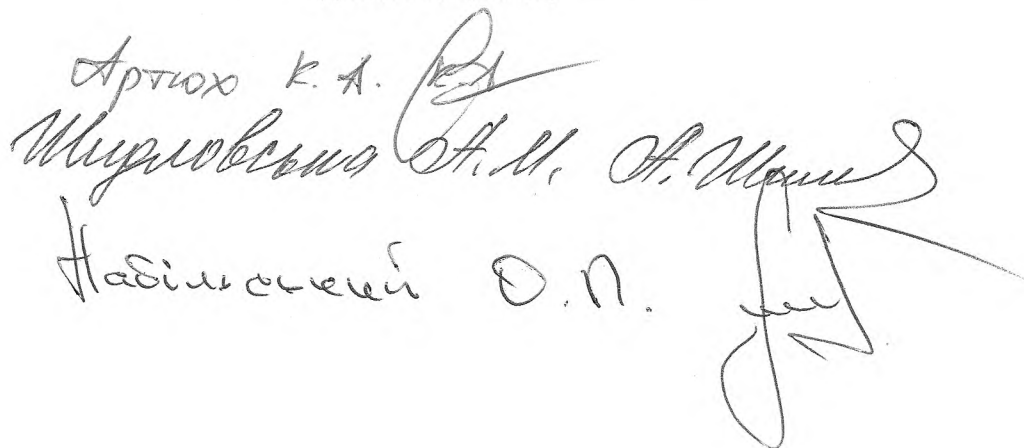 Артюх К. А.
Шидловська А. М. А. Ш
Набільський О. П.